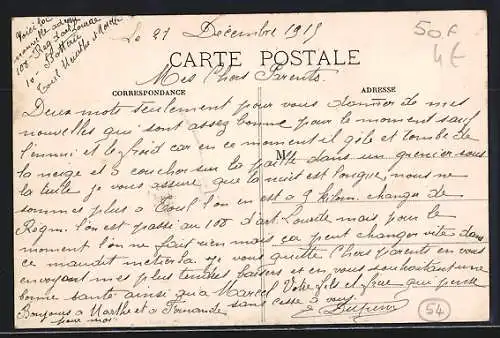 Voici la
nouvelle adresse
108e Reg d'artillerie
10e Batterie
Toul Meurthe et Moselle
50F
4€
Le 21 Décembre 1915
CARTE POSTALE
Mes Chers Parents.
CORRESPONDANCE
ADRESSE
M
Deux mots seulement pour vous donner de mes
nouvelles qui sont assez bonne pour le moment sauf
l'ennui et le froid car en ce moment il gèle et tombe de
la neige et à coucher sur la paille dans un grenier sous
la tuile je vous assure que la nuit est longue, nous ne
sommes plus a Toul l'on en est a 9 kilom. changer de
Régm. l'on est passé au 108 d'art. Lourde mais pour le
moment l'on ne fait rien mais ça peut changer vite dans
ce maudit metier la. je vous quitte Chers parents en vous
envoyant mes plus tendres baisers et en vous souhaitant une
bonne santé ainsi qu'a Marcel Votre fils et frère qui pense
Bonjours a Marthe et a Fernande sans cesse à vous.
pour moi.
E.
54